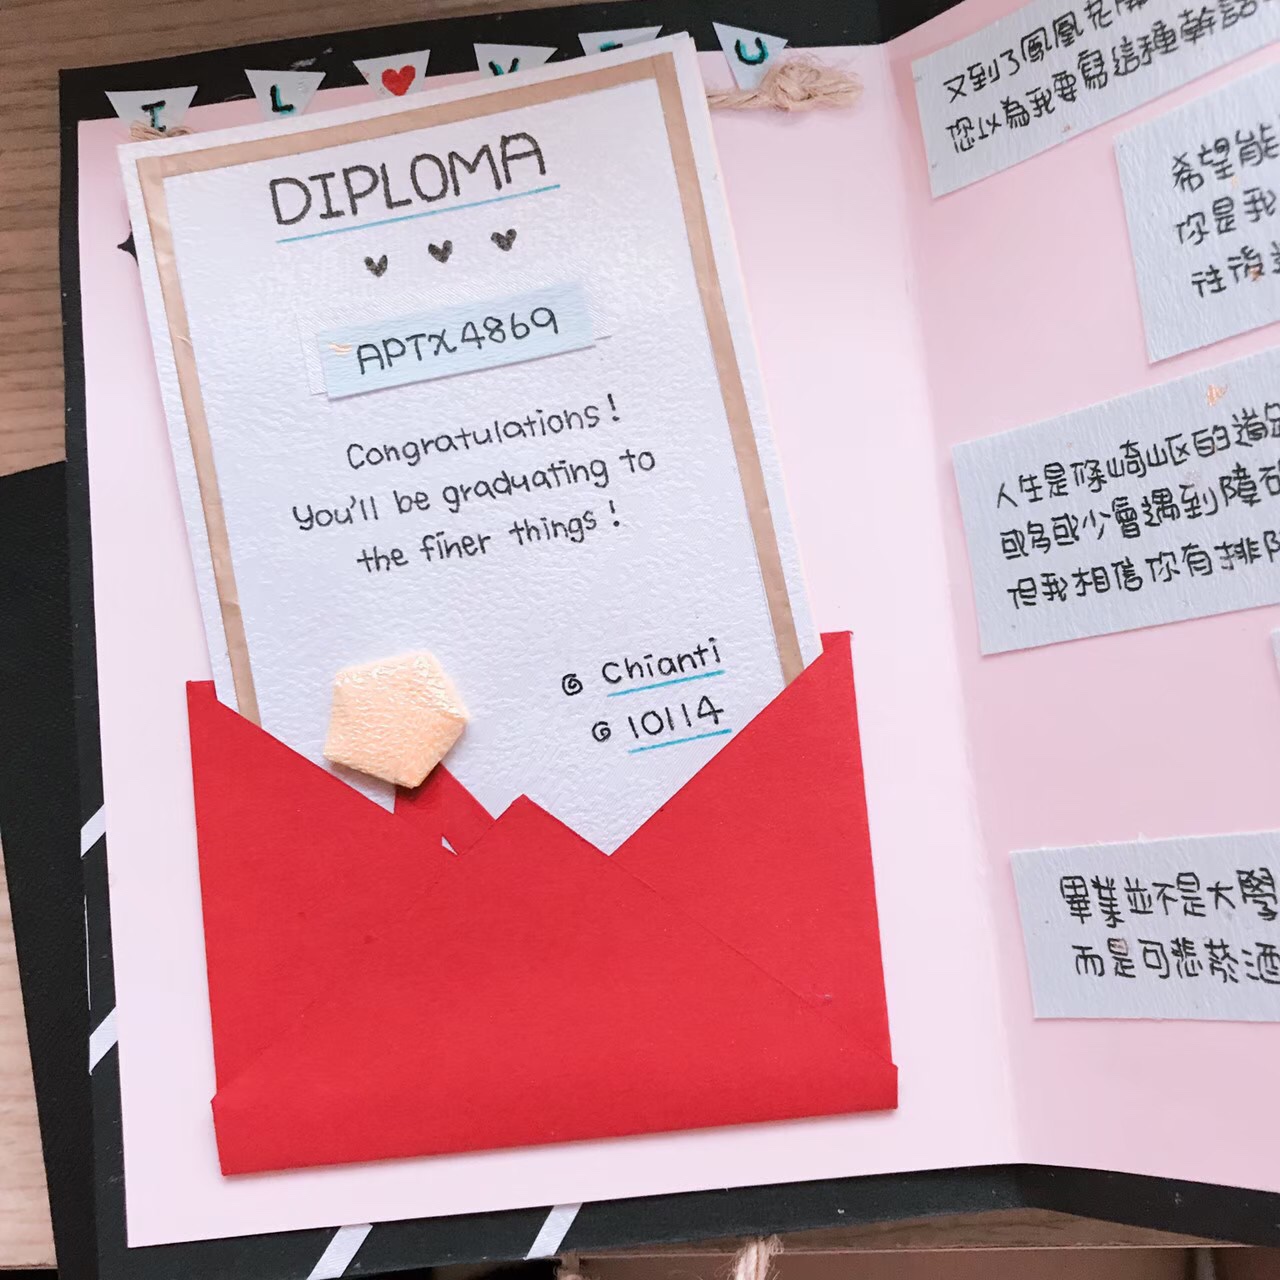 I L ♥ V E U
DIPLOMA
APTX4869
Congratulations!
You'll be graduating to
the finer things!
Chianti
10114
又到了鳳凰花開
您以為我要寫這種幹話
希望能
你是我
往後
人生是條崎嶇的道路
或多或少會遇到障礙
但我相信你有排除
畢業並不是大學
而是可悲菸酒